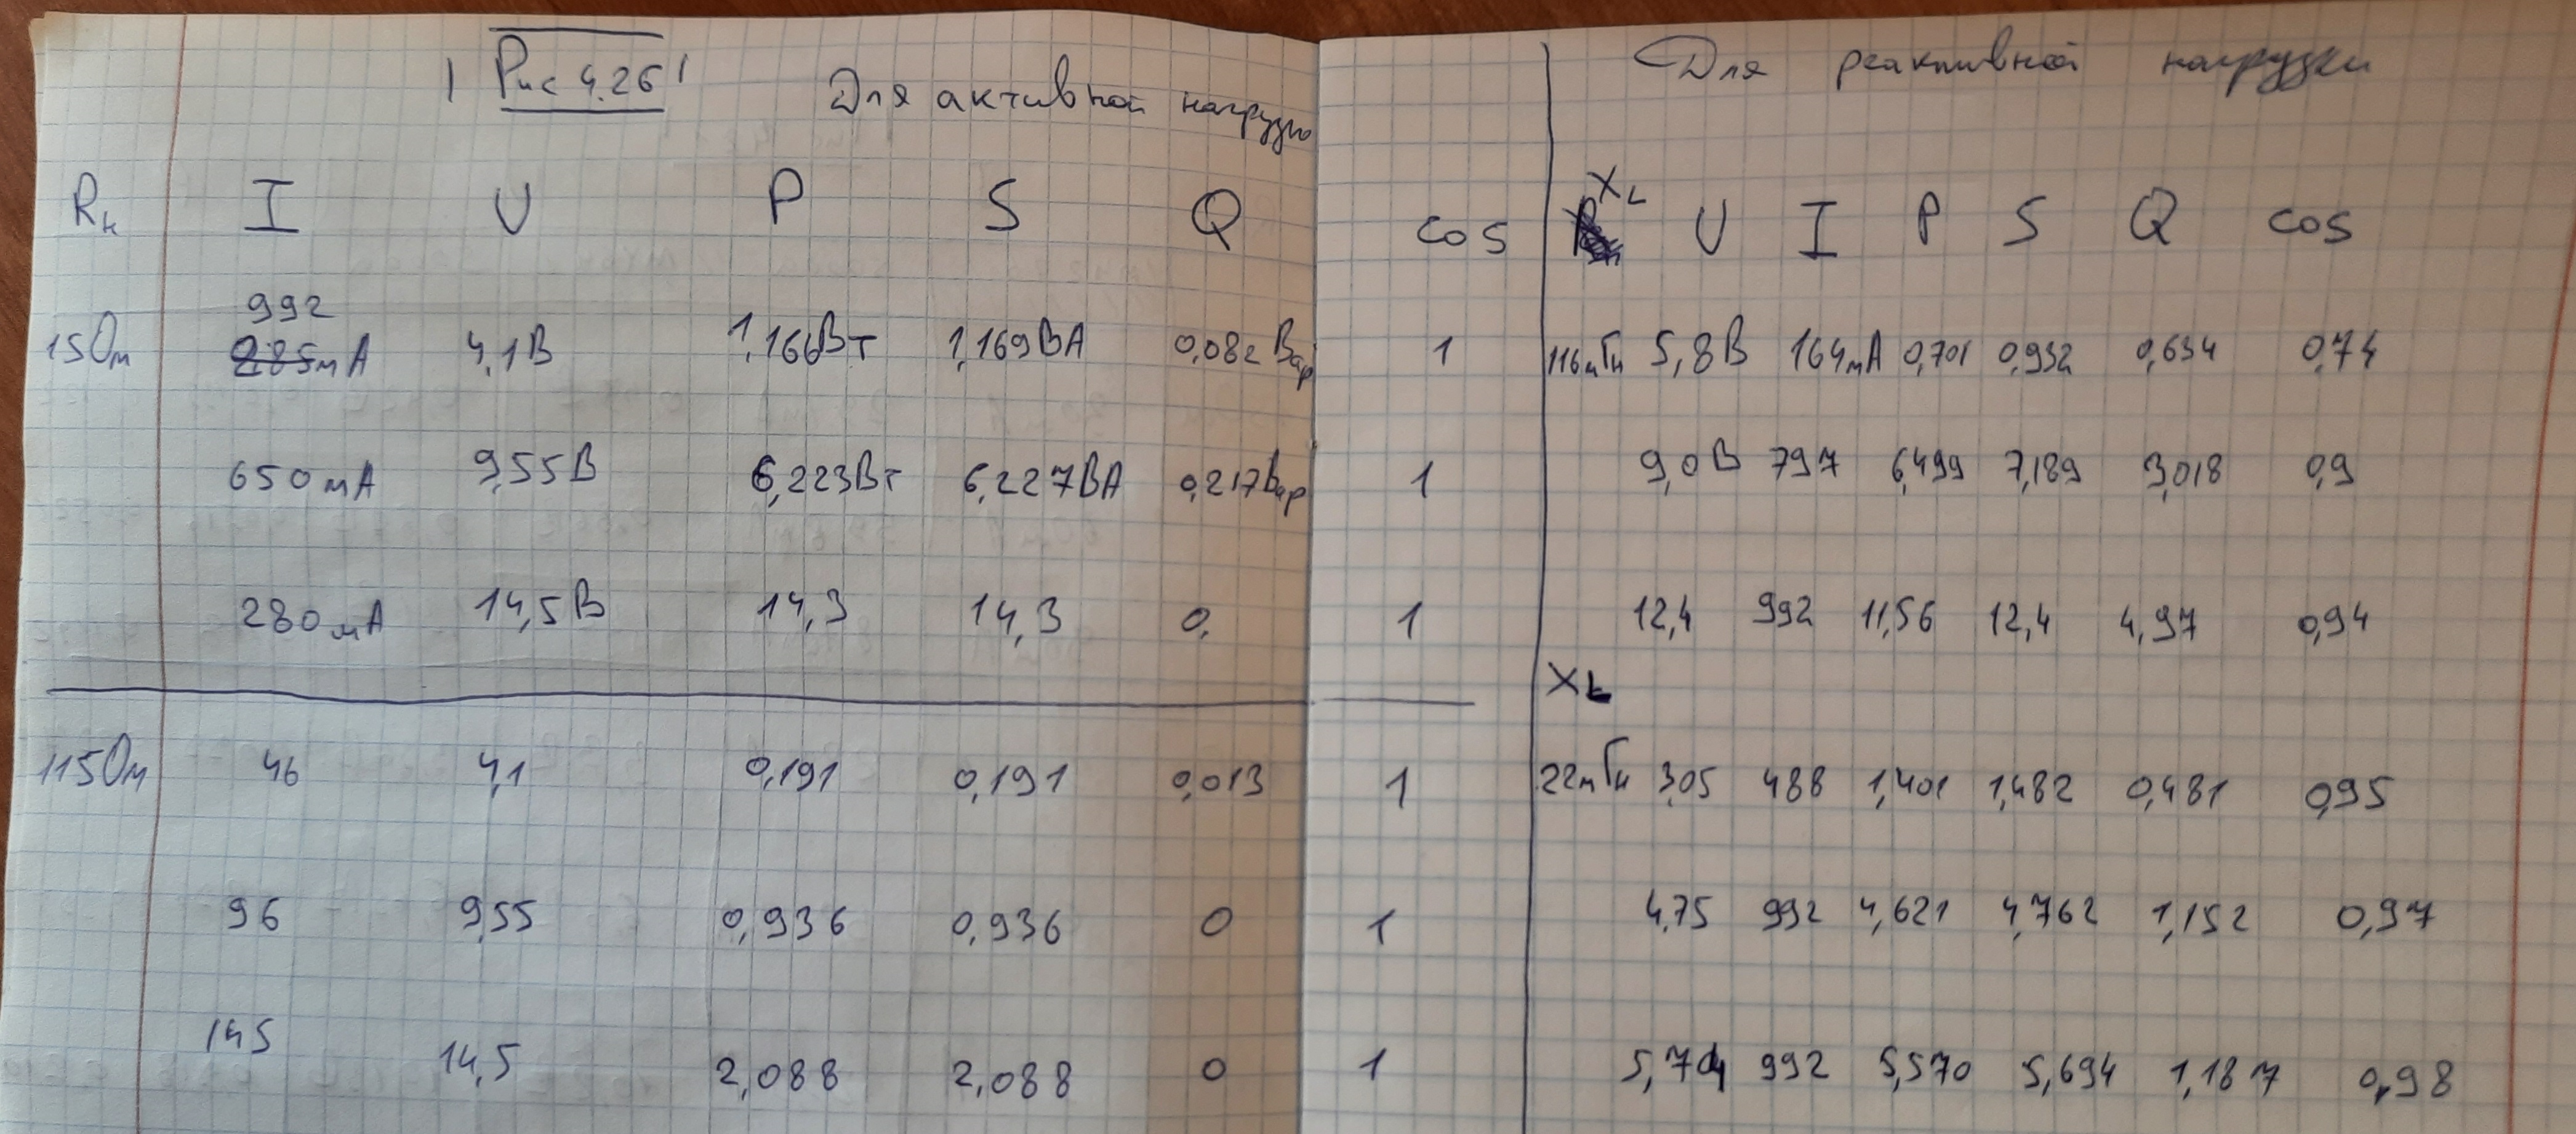 Рис 4.26
Для активной нагрузки
Rн I U P S Q cos
992
15 Ом 285мА 4,1В 1,166Вт 1,169ВА 0,082 Вар 1
650мА 9,55В 6,223Вт 6,227ВА 0,217Вар 1
280мА 14,5В 14,3 14,3 0, 1
115Ом 46 4,1 0,191 0,191 0,013 1
96 9,55 0,936 0,936 0 1
145 14,5 2,088 2,088 0 1
Для реактивной нагрузки
XL U I P S Q cos
116мГн 5,8В 164мА 0,701 0,932 0,634 0,74
9,0В 797 6,499 7,189 3,018 0,9
12,4 992 11,56 12,4 4,97 0,94
XL
22мГн 3,05 488 1,401 1,482 0,481 0,95
4,75 992 4,621 4,762 1,152 0,97
5,74 992 5,570 5,694 1,187 0,98